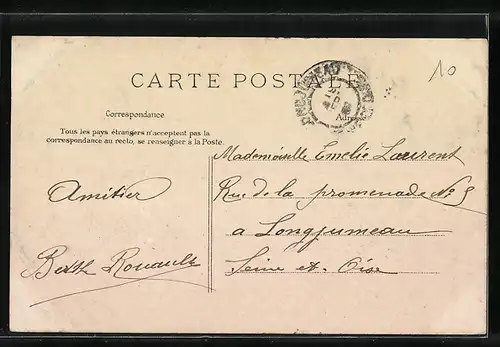 CARTE POSTALE
10
Correspondance
Adre
Tous les pays étrangers n'acceptent pas la
correspondance au recto, se renseigner à la Poste.
Mademoiselle Emelie Laurent
Amitier
Rue de la promenade No 5
a Longjumeau
Berth Rouault
Seine et Oise